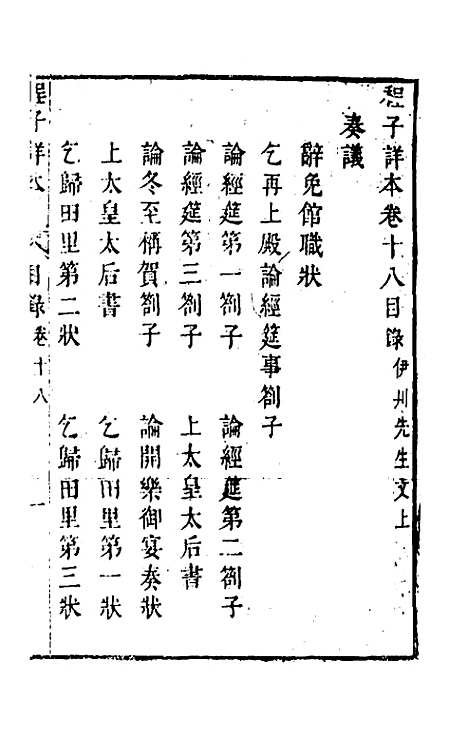 程子詳本卷十八目錄 伊川先生文上
奏議
辭免館職狀
乞再上殿論經筵事劄子
論經筵第一劄子 論經筵第二劄子
論經筵第三劄子 上太皇太后書
論冬至稱賀劄子 論開樂御宴奏狀
上太皇太后書 乞歸田里第一狀
乞歸田里第二狀 乞歸田里第三狀
程子詳本 目錄 卷十八 一